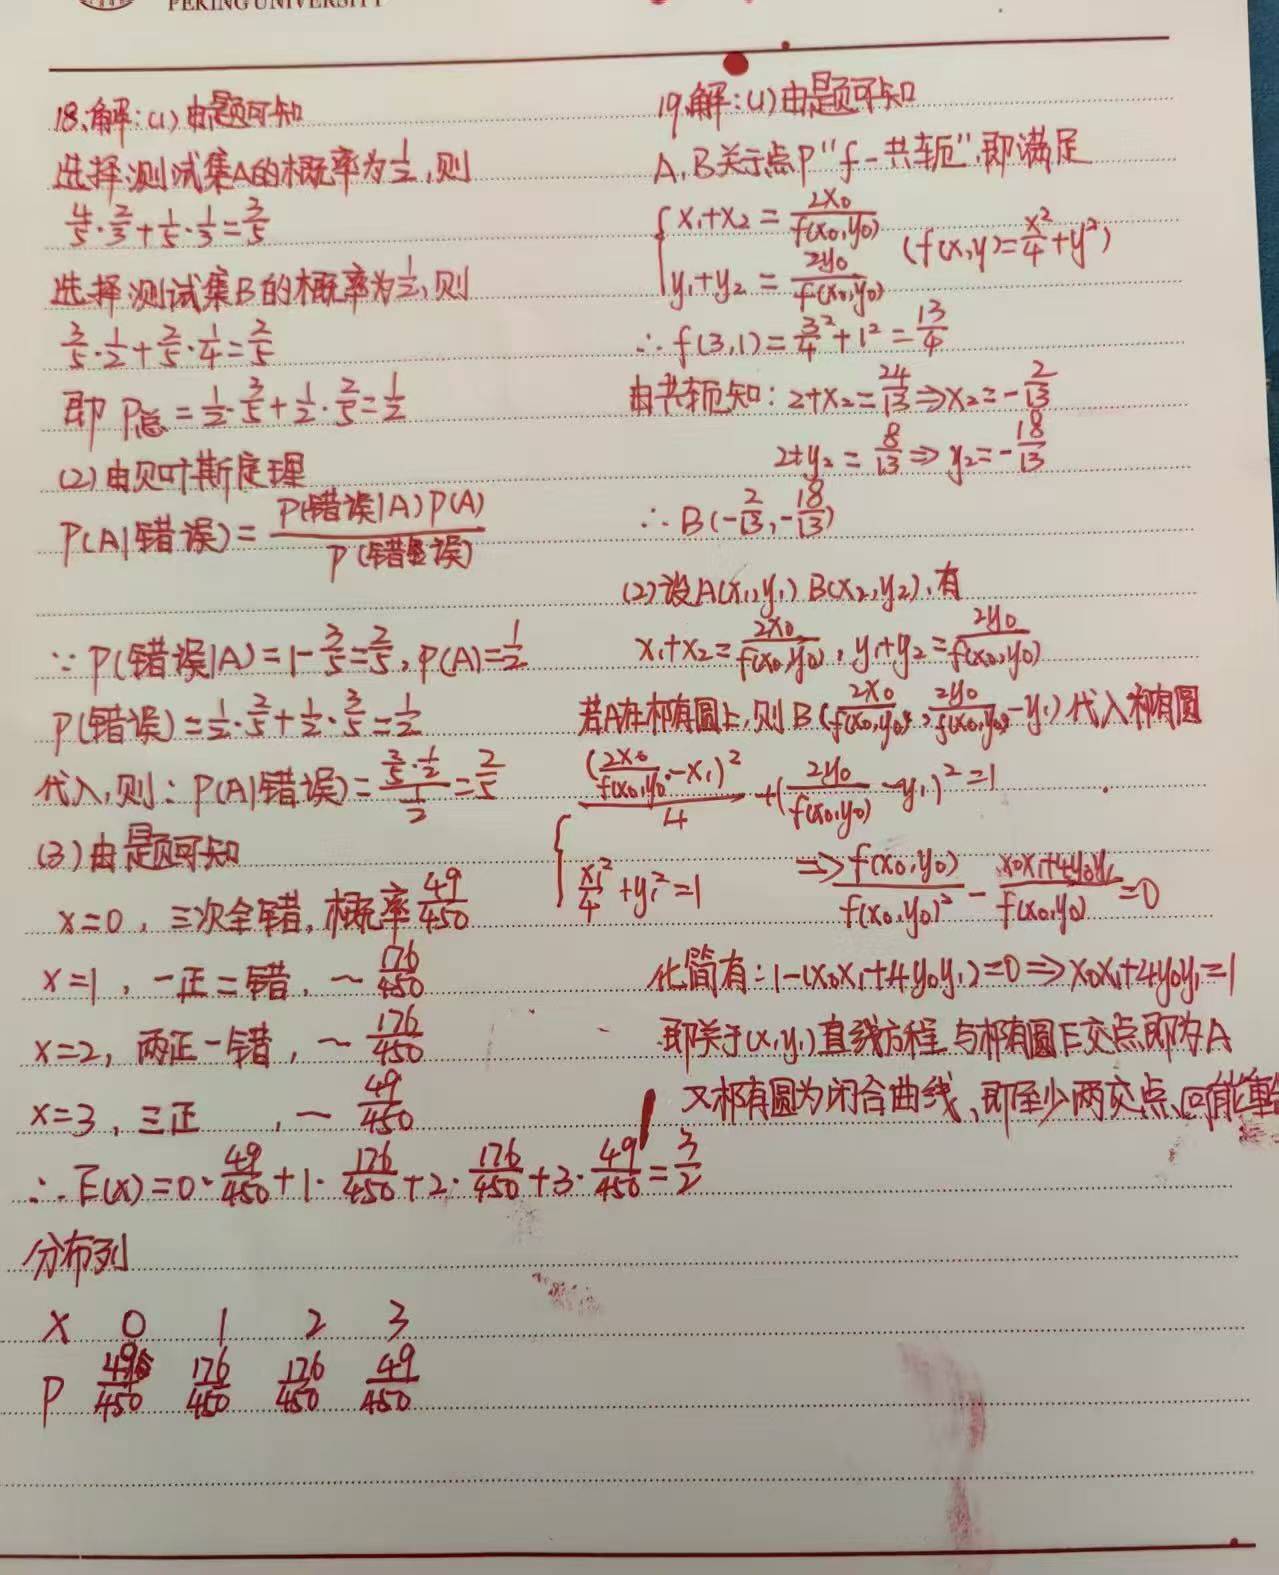 PEKING UNIVERSITY
18、解:(1)由题可知
选择测试集A的概率为1/2,则
4/5·2/3+1/5·1/3=3/5
选择测试集B的概率为1/2,则
3/5·1/2+2/5·1/4=2/5
即 P总=1/2·3/5+1/2·2/5=1/2
(2)由贝叶斯定理
P(A|错误)=P(错误|A)P(A)/P(错误)
∵P(错误|A)=1-3/5=2/5,P(A)=1/2
P(错误)=1/2·2/5+1/2·3/5=1/2
代入,则:P(A|错误)=(2/5·1/2)/(1/2)=2/5
(3)由题可知
x=0,三次全错,概率49/450
x=1,一正二错,~176/450
x=2,两正一错,~176/450
x=3,三正,~49/450
∴E(x)=0·49/450+1·176/450+2·176/450+3·49/450=3/2
分布列
X 0 1 2 3
P 49/450 176/450 176/450 49/450
19、解:(1)由题可知
A,B关于点P"f-共轭",即满足
{x₁+x₂=2x₀/f(x₀,y₀)
y₁+y₂=2y₀/f(x₀,y₀) (f(x,y)=x²/4+y²)
∴f(3,1)=3²/4+1²=13/4
由共轭知:2+x₂=24/13⇒x₂=-2/13
2+y₂=8/13⇒y₂=-18/13
∴B(-2/13,-18/13)
(2)设A(x₁,y₁)B(x₂,y₂),有
x₁+x₂=2x₀/f(x₀,y₀),y₁+y₂=2y₀/f(x₀,y₀)
若A在椭圆上,则B(2x₀/f(x₀,y₀),2y₀/f(x₀,y₀)-y₁)代入椭圆
{(2x₀/f(x₀,y₀)-x₁)²/4+(2y₀/f(x₀,y₀)-y₁)²=1
x₁²/4+y₁²=1 ⇒f(x₀,y₀)/f(x₀,y₀)²-(x₀x₁+4y₀y₁)/f(x₀,y₀)=0
化简有:1-(x₀x₁+4y₀y₁)=0⇒x₀x₁+4y₀y₁=1
即关于(x₁,y₁)直线方程与椭圆E交点即为A
又椭圆为闭合曲线,即至少两交点,可能重合